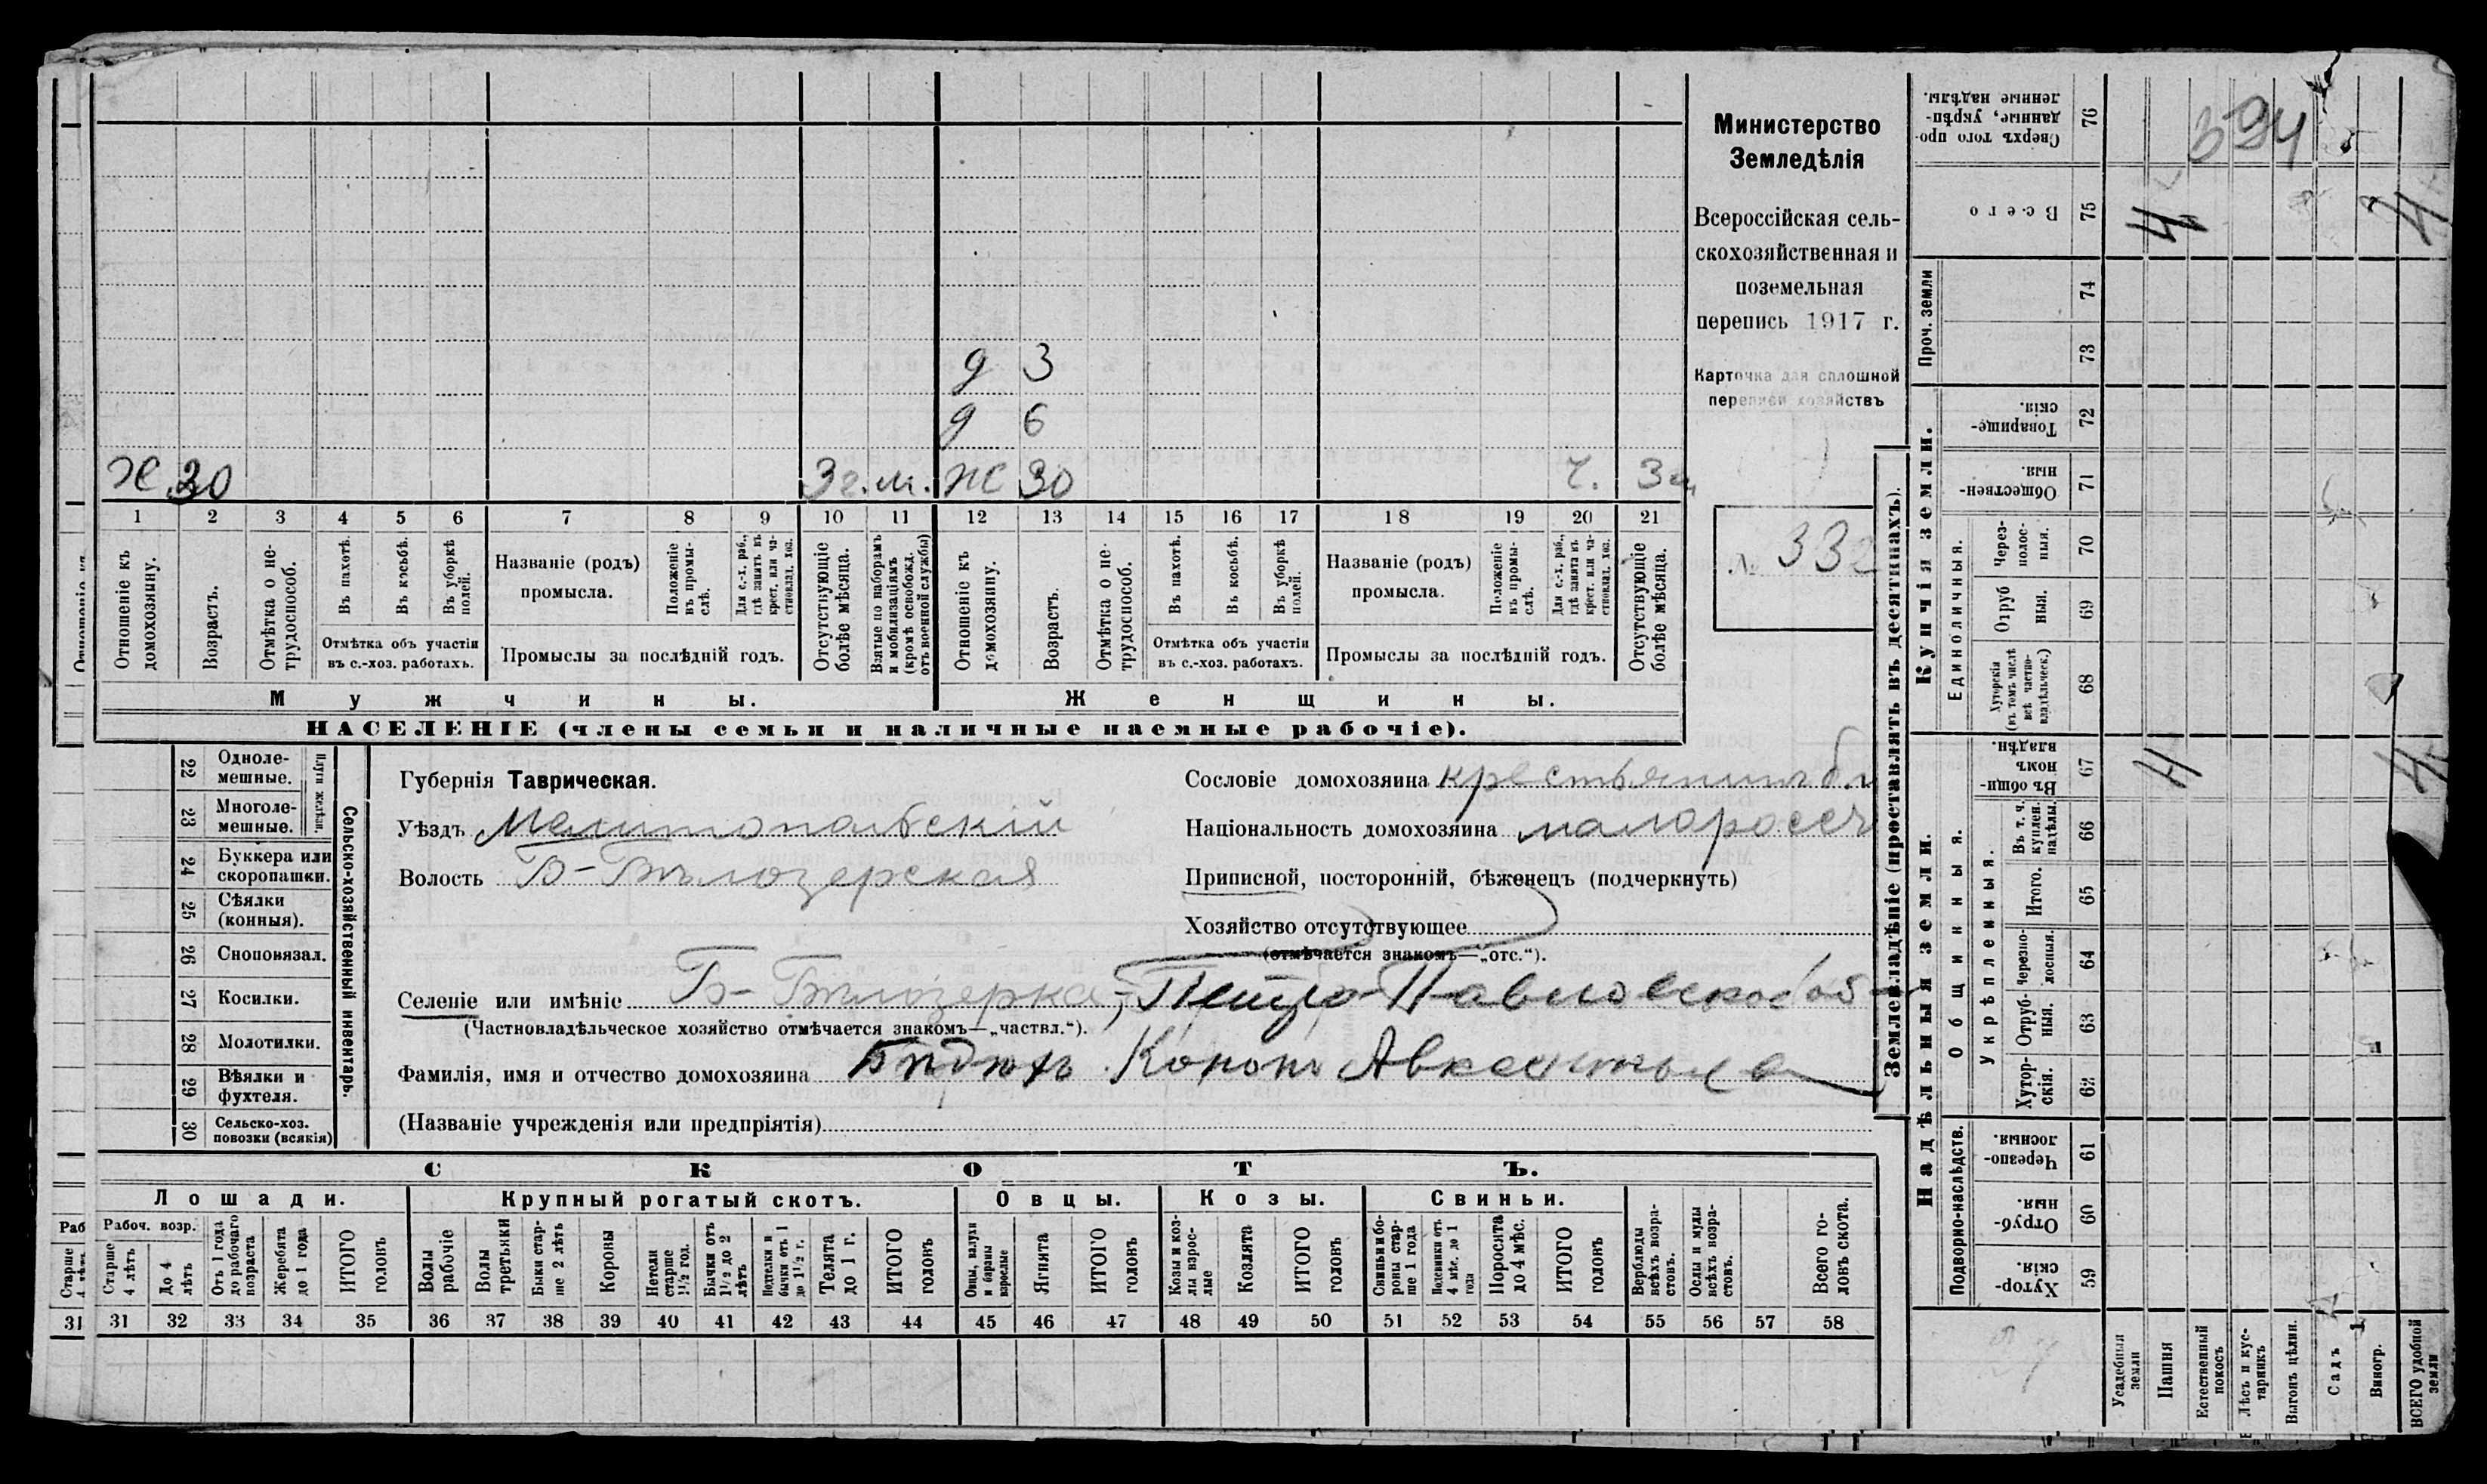 Министерство
Земледѣлія
Всероссійская сель-
скохозяйственная и
поземельная
перепись 1917 г.
Карточка для сплошной
переписи хозяйствъ
№ 332
д 3
д 6
Х 30 3 г. м. Ж 30 г. 3
1 2 3 4 5 6 7 8 9 10 11 12 13 14 15 16 17 18 19 20 21
Отношеніе къ домохозяину.
Возрастъ.
Отмѣтка о не-трудоспособ.
Въ пахотѣ.
Въ косьбѣ.
Въ уборкѣ полей.
Отмѣтка объ участіи
въ с.-хоз. работахъ.
Названіе (родъ)
промысла.
Положеніе въ промы-слѣ.
Для с.-х. раб., гдѣ занятъ въ крест. или ча-стновлад. хоз.
Промыслы за послѣдній годъ.
Отсутствующіе болѣе мѣсяца.
Взятые по наборамъ и мобилизаціямъ (кромѣ освобожд. отъ военной службы)
Отношеніе къ домохозяину.
Возрастъ.
Отмѣтка о не-трудоспособ.
Въ пахотѣ.
Въ косьбѣ.
Въ уборкѣ полей.
Отмѣтка объ участіи
въ с.-хоз. работахъ.
Названіе (родъ)
промысла.
Положеніе въ промы-слѣ.
Для с.-х. раб., гдѣ занята въ крест. или ча-стновлад. хоз.
Промыслы за послѣдній годъ.
Отсутствующіе болѣе мѣсяца.
Мужчины. Женщины.
НАСЕЛЕНІЕ (члены семьи и наличные наемные рабочіе).
22 Одноле-мешные.
23 Многоле-мешные.
Плуги желѣзн.
24 Буккера или скоропашки.
25 Сѣялки (конныя).
26 Сноповязал.
27 Косилки.
28 Молотилки.
29 Вѣялки и фухтеля.
30 Сельско-хоз. повозки (всякія)
Сельско-хозяйственный инвентарь.
Губернія Таврическая.
Уѣздъ Мелитопольскій
Волость Б-Бѣлозерская
Селеніе или имѣніе Б-Бѣлозерка, Петро-Павловской об-
(Частновладѣльческое хозяйство отмѣчается знакомъ—„частвл.“).
Фамилія, имя и отчество домохозяина Кононъ
(Названіе учрежденія или предпріятія)
Сословіе домохозяина крестьянинъ
Національность домохозяина малоросс
Приписной, посторонній, бѣженецъ (подчеркнуть)
Хозяйство отсутствующее
(отмѣчается знакомъ—„отс.“).
СКОТЪ.
Лошади. Крупный рогатый скотъ. Овцы. Козы. Свиньи.
Раб
Старше
31
Рабоч. возр.
Старше 4 лѣтъ
До 4 лѣтъ
Отъ 1 года до рабочаго возраста
Жеребята до 1 года
ИТОГО головъ
Волы рабочіе
Волы третьяки
Быки стар-ше 2 лѣтъ
Коровы
Нетели старше 1½ год.
Бычки отъ 1½ до 2 лѣтъ
Подтелки и бычки отъ 1 до 1½ г.
Телята до 1 г.
ИТОГО головъ
Овцы, валухи и бараны взрослые
Ягнята
ИТОГО головъ
Козы и коз-лы взрос-лые
Козлята
ИТОГО головъ
Свиньи и бо-ровы стар-ше 1 года
Подсвинки отъ 4 мѣс. до 1 года
Поросята до 4 мѣс.
ИТОГО головъ
Верблюды всѣхъ возра-стовъ.
Ослы и мулы всѣхъ возра-стовъ.
Всего го-ловъ скота.
31 32 33 34 35 36 37 38 39 40 41 42 43 44 45 46 47 48 49 50 51 52 53 54 55 56 57 58
Землевладѣніе (проставлять въ десятинахъ).
Купчія земли.
Надѣльныя земли.
Сверхъ того про-данные, укрѣп-ленные надѣлы. 76
394
Всего 75 4 4
Проч. земли 74
73
Товарище-скія. 72
Обществен-ныя. 71
Единоличныя.
Через-полос-ныя. 70
Отруб-ныя. 69
Хуторскія (въ томъ числѣ всѣ частно-владѣльческ.) 68
Общинныя.
Въ общи-номъ владѣн. 67 4 4
Укрѣпленныя.
Въ т. ч. куплен. надѣлы. 66
Итого. 65
Черезпо-лосныя. 64
Отруб-ныя. 63
Хутор-скія. 62
Подворно-наслѣдств.
Черезпо-лосныя. 61
Отруб-ныя. 60
Хутор-скія. 59
Усадебныя земли
Пашня
Естественный покосъ
Лѣсъ и кус-тарникъ
Выгонъ цѣлин.
Садъ
Виногр.
ВСЕГО удобной земли